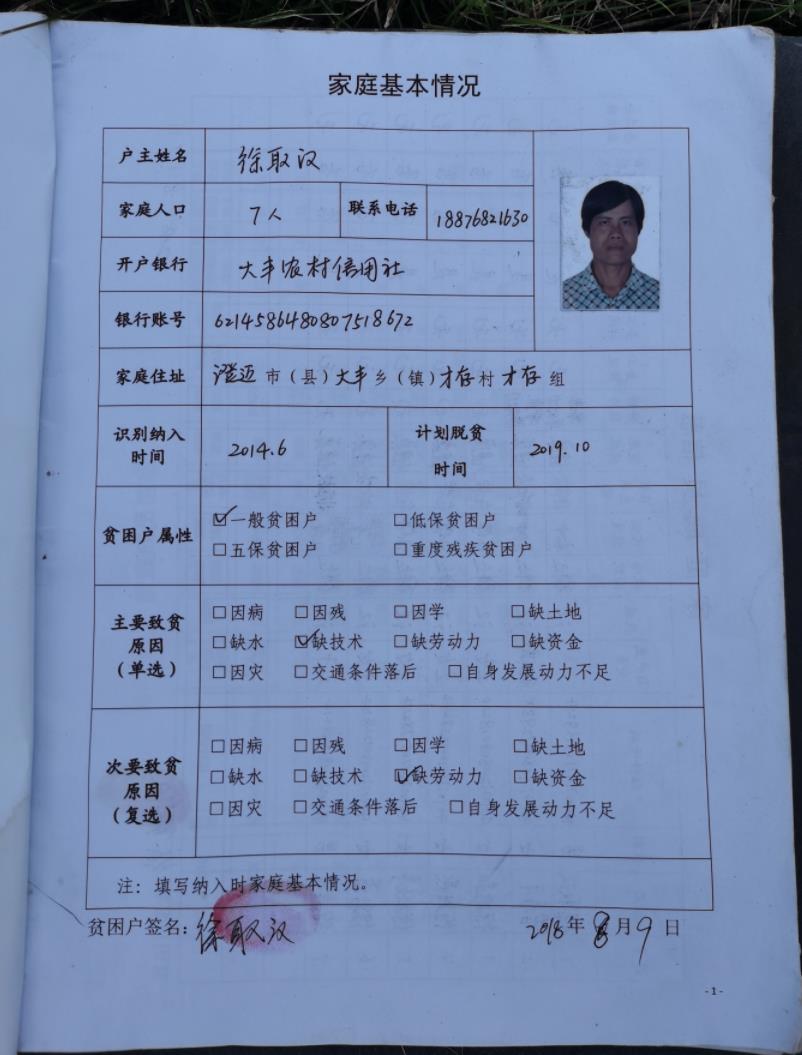 家庭基本情况
户主姓名 徐取汉
家庭人口 7人 联系电话 18876821630
开户银行 大丰农村信用社
银行账号 6214586480807518672
家庭住址 澄迈市（县）大丰乡（镇）才存村才存组
识别纳入时间 2014.6 计划脱贫时间 2019.10
贫困户属性 ☑一般贫困户 □低保贫困户
□五保贫困户 □重度残疾贫困户
主要致贫原因（单选） □因病 □因残 □因学 □缺土地
□缺水 ☑缺技术 □缺劳动力 □缺资金
□因灾 □交通条件落后 □自身发展动力不足
次要致贫原因（复选） □因病 □因残 □因学 □缺土地
□缺水 □缺技术 ☑缺劳动力 □缺资金
□因灾 □交通条件落后 □自身发展动力不足
注：填写纳入时家庭基本情况。
贫困户签名：徐取汉 2018年8月9日
-1-